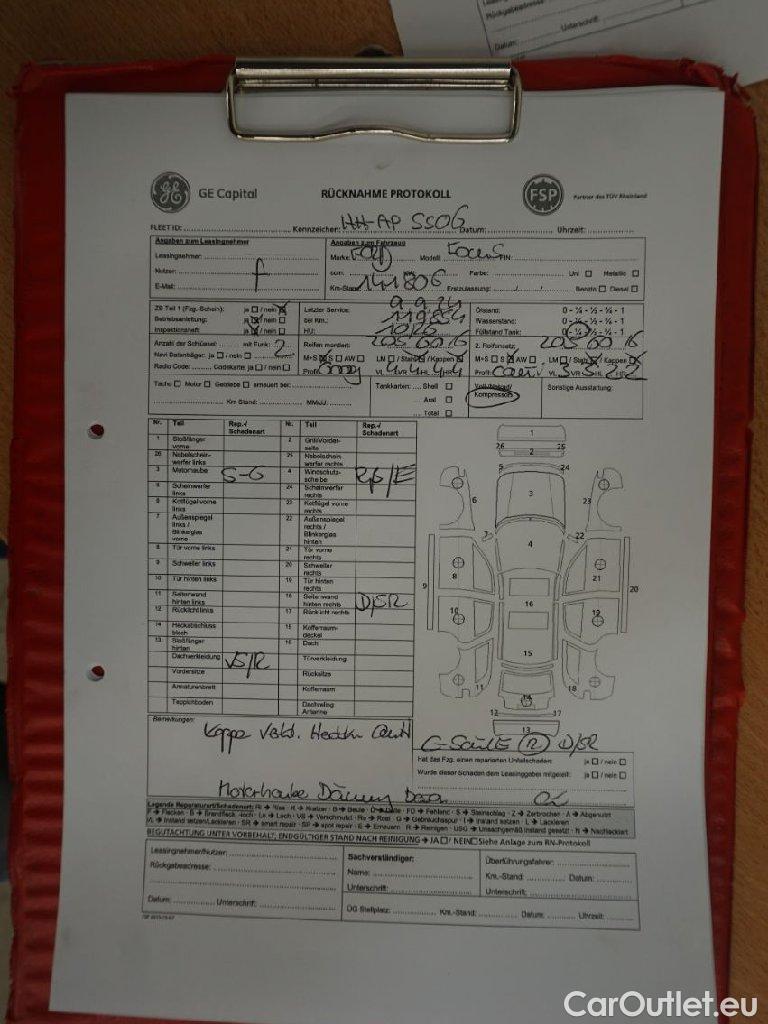 Rückgabeadresse:
Datum: Unterschrift:
GE Capital RÜCKNAHME PROTOKOLL FSP Partner des TÜV Rheinland
FLEET ID: Kennzeichen: HH-AP 5506 Datum: Uhrzeit:
Angaben zum Leasingnehmer Angaben zum Fahrzeug
Leasingnehmer: Marke: Ford Modell: Focus FIN:
Nutzer: ccm: KW: Farbe: Uni Metallic
E-Mail: Km-Stand: 141806 Erstzulassung: Benzin Diesel
ZB Teil 1 (Fzg.-Schein): ja / nein Letzter Service: 9.9.21 Ölstand: 0 - ¼ - ½ - ¾ - 1
Betriebsanleitung: ja / nein bei Km.: 119884 Wasserstand: 0 - ¼ - ½ - ¾ - 1
Inspektionsheft: ja / nein HU: 10/26 Füllstand Tank: 0 - ¼ - ½ - ¾ - 1
Anzahl der Schlüssel: mit Funk: 2 Reifen montiert: 205 60 16 2. Radsatz: 205 60 16
Navi Datenträger: ja - nein M+S S AW LN / Stahl / Kappen M+S S AW LM / Stahl / Kappen
Radio Code: Codekarte ja / nein Profil: VL 4 VR 4 HL 4 HR 4 Profil: Conti VL 3 VR 3 HL 2 HR 2
Tacho Motor Getriebe erneuert bei: Tankkarten: Shell Notrad/ Kompressor Sonstige Ausstattung:
Km Stand: MM/JJ: Aral
Total
Nr. Teil Rep.-/ Schadenart Nr. Teil Rep.-/ Schadenart
1 Stoßfänger vorne 2 Grill/Vorderseite
26 Nebelscheinwerfer links 25 Nebelscheinwerfer rechts
3 Motorhaube S-G 4 Windschutzscheibe Rp/E
5 Scheinwerfer links 24 Scheinwerfer rechts
6 Kotflügel vorne links 23 Kotflügel vorne rechts
7 Außenspiegel links / Blinkerglas vorne 22 Außenspiegel rechts / Blinkerglas hinten
8 Tür vorne links 21 Tür vorne rechts
9 Schweller links 20 Schweller rechts
10 Tür hinten links 19 Tür hinten rechts
11 Seitenwand hinten links 18 Seitenwand hinten rechts D/SR
12 Rücklicht links 17 Rücklicht rechts
14 Heckabschlussblech 15 Kofferraumdeckel
13 Stoßfänger hinten 16 Dach
Dachverkleidung VS/R Türverkleidung
Vordersitze Rücksitze
Armaturenbrett Kofferraum
Teppichboden Dachreling Antenne
1
26 25
2
5 24
6 3 23
7 22
4
8 21
9 20
16
10 19
15
11 18
14
12 17
13
Bemerkungen:
C-Säule (R) D/SR
Hat das Fzg. einen reparierten Unfallschaden: ja / nein
Wurde dieser Schaden dem Leasinggeber mitgeteilt: ja / nein
Motorhaube Dämung
BEGUTACHTUNG UNTER VORBEHALT, ENDGÜLTIGER STAND NACH REINIGUNG → JA / NEIN Siehe Anlage zum RN-Protokoll
Leasingnehmer/Nutzer: Sachverständiger: Überführungsfahrer:
Rückgabeadresse: Name: Km.-Stand: Datum:
Unterschrift: Unterschrift:
Datum: Unterschrift: OG Stellplatz: Km.-Stand: Datum: Uhrzeit:
CarOutlet.eu